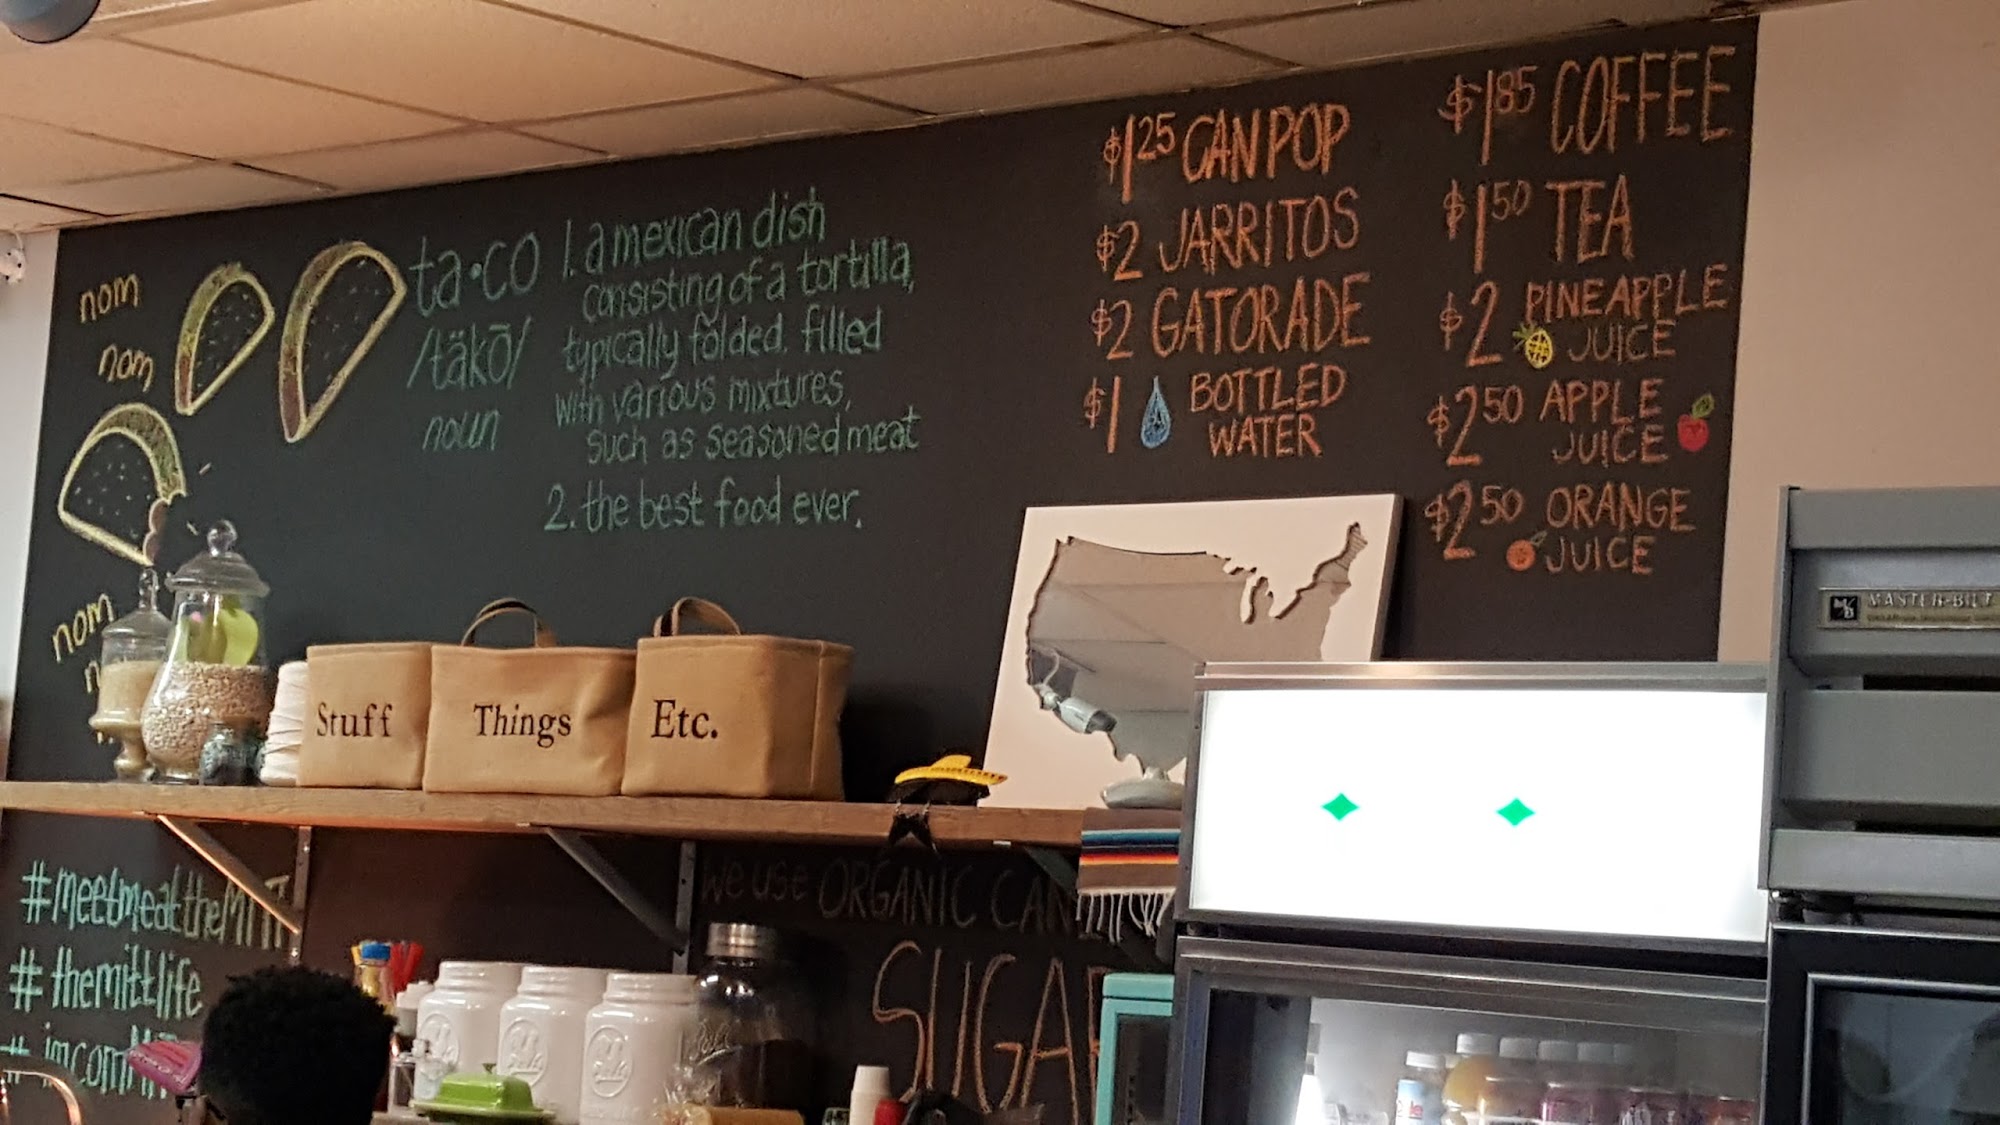 nom
nom
nom
ta•co
/täkō/
noun
1. a mexican dish
consisting of a tortilla,
typically folded. filled
with various mixtures,
such as seasoned meat
2. the best food ever.
$1.25 CAN POP
$2 JARRITOS
$2 GATORADE
$1 BOTTLED
WATER
$1.85 COFFEE
$1.50 TEA
$2 PINEAPPLE
JUICE
$2.50 APPLE
JUICE
$2.50 ORANGE
JUICE
Stuff
Things
Etc.
MASTER-BILT
#meetmeattheMITT
#themittlife
We use ORGANIC CAN
SUGAR